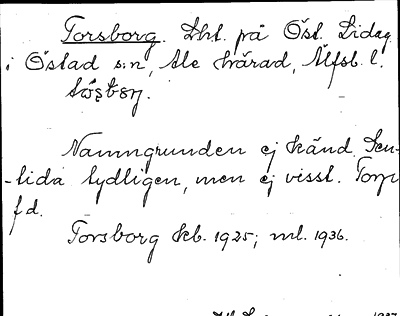 Torsborg. Lht. på Öst. Lidag
i Östad s:n, Ale härad, Älfsb. l.
Namngrunden ej känd. Sen-
-tida tydligen, men ej visst. Torp
f d.
Torsborg kb. 1925; ml. 1936.